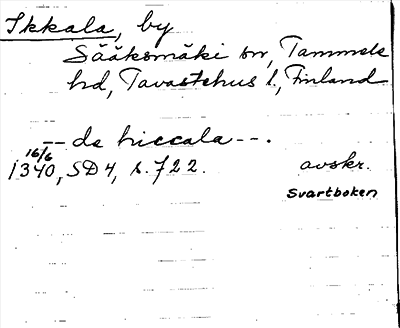 Ikkala, by
Sääksmäki sn, Tammela
hd, Tavastehus l., Finland
-- de hiccala --.
16/6
1340, SD4, s. 722. avskr.
Svartboken